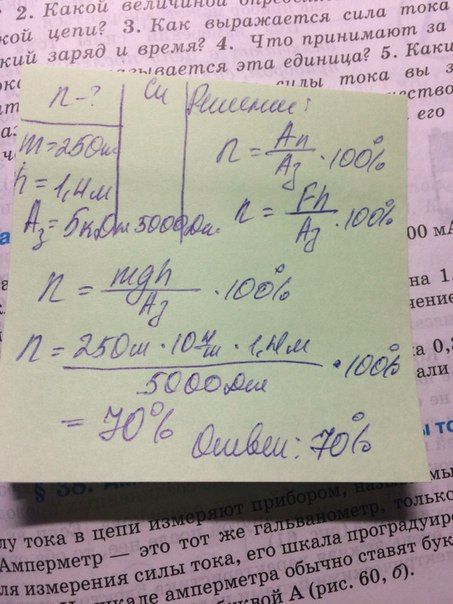 2. Какой величиной
кой цепи? 3. Как выражается сила тока
кий заряд и время? 4. Что принимают за
зывается эта единица? 5. Каки
силы тока вы з
его
n-? Си Решение:
m=250т
h=1,4м
Аз=5кДж 5000Дж
n = Ап/Аз · 100%
n = Fh/Аз · 100%
n = mgh/Аз · 100%
n = 250т · 10 н/т · 1,4м / 5000Дж · 100%
= 70% Ответ: 70%
00 мА
на 1.
чение
а 0,
али
ы то
§ 38.
лу тока в цепи измеряют прибором,
Амперметр — это тот же гальванометр, только
ля измерения силы тока, его шкала проградуиро
шкале амперметра обычно ставят бук
буквой А (рис. 60, б).